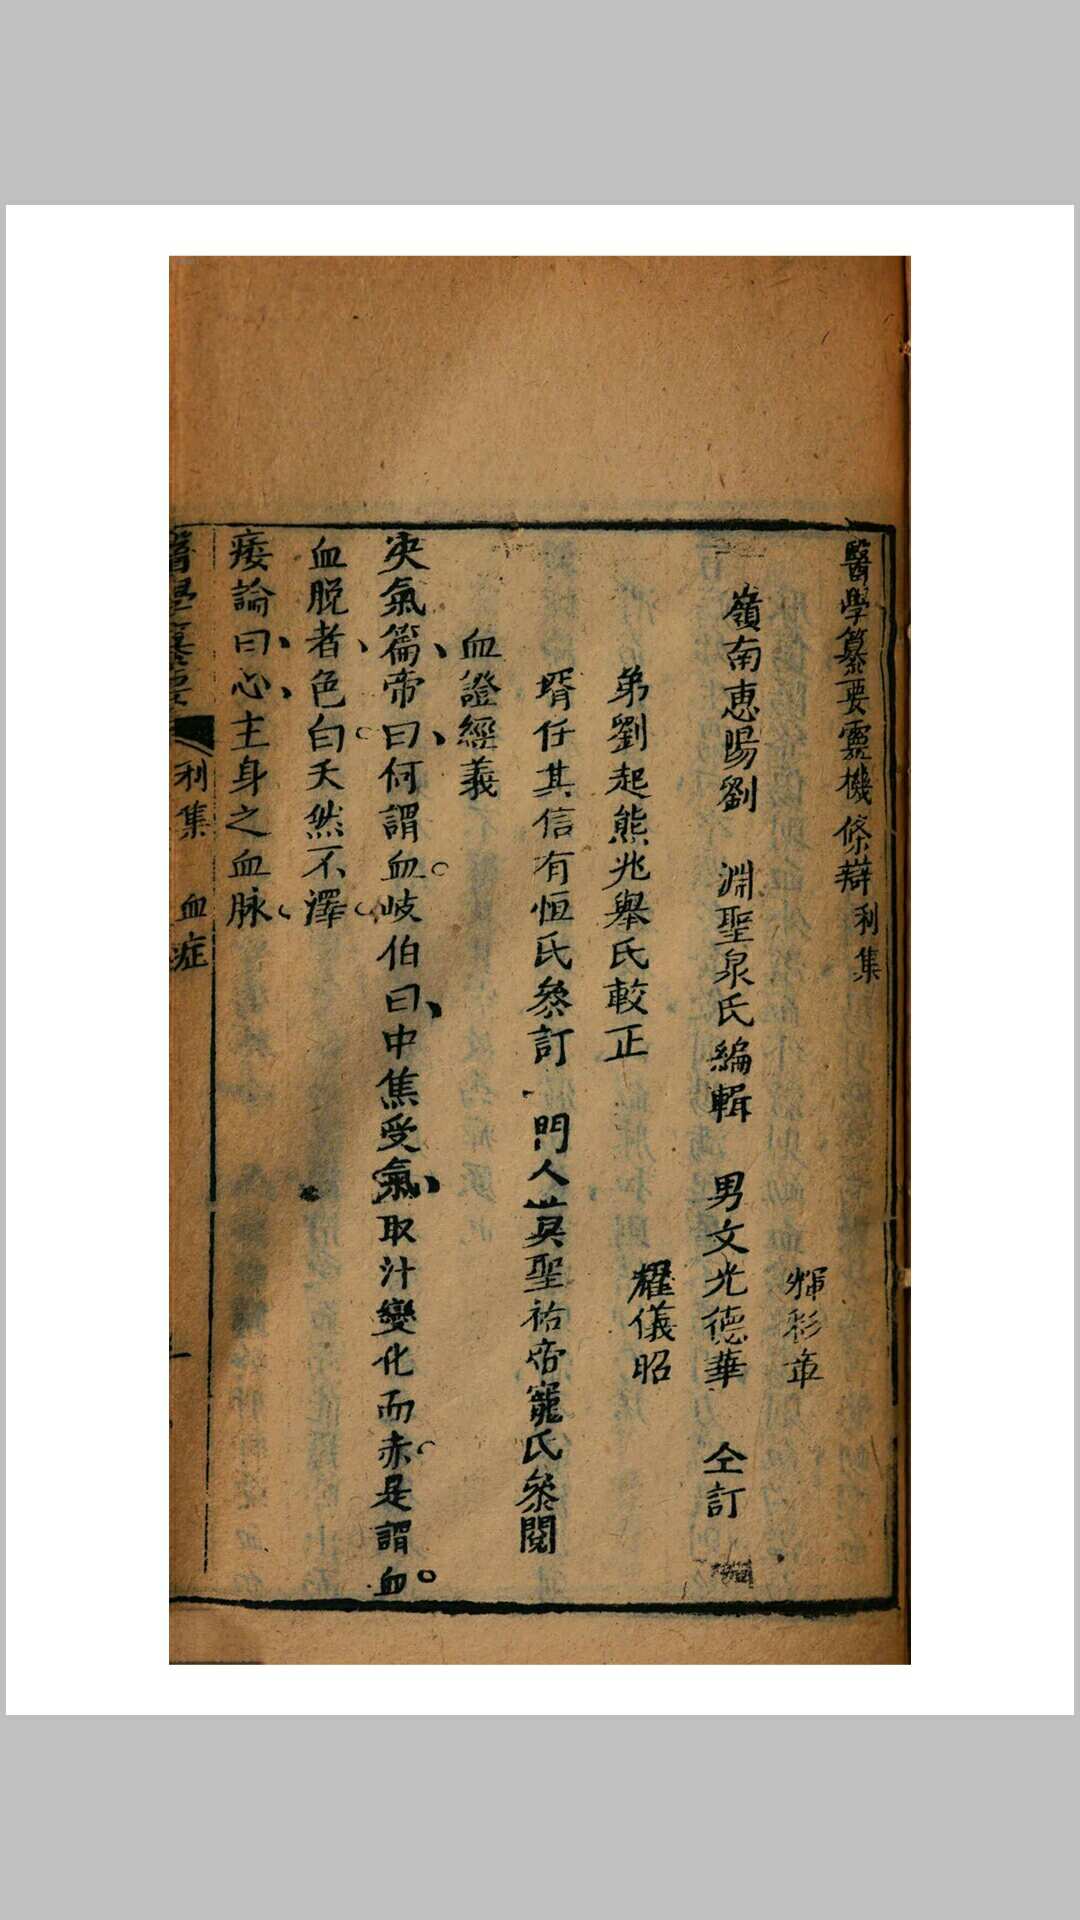 醫學纂要靈機條辯利集
輝彩章
嶺南惠陽劉 淵聖泉氏編輯 男文光德華 仝訂
耀儀昭
弟劉起熊兆舉氏較正
壻任其信有恒氏參訂 門人黃聖祐帝寵氏參閱
血證經義
夬氣篇帝曰何謂血岐伯曰中焦受氣取汁變化而赤是謂血
血脫者色白夭然不澤
痿論曰心主身之血脉
醫學纂要 利集 血症